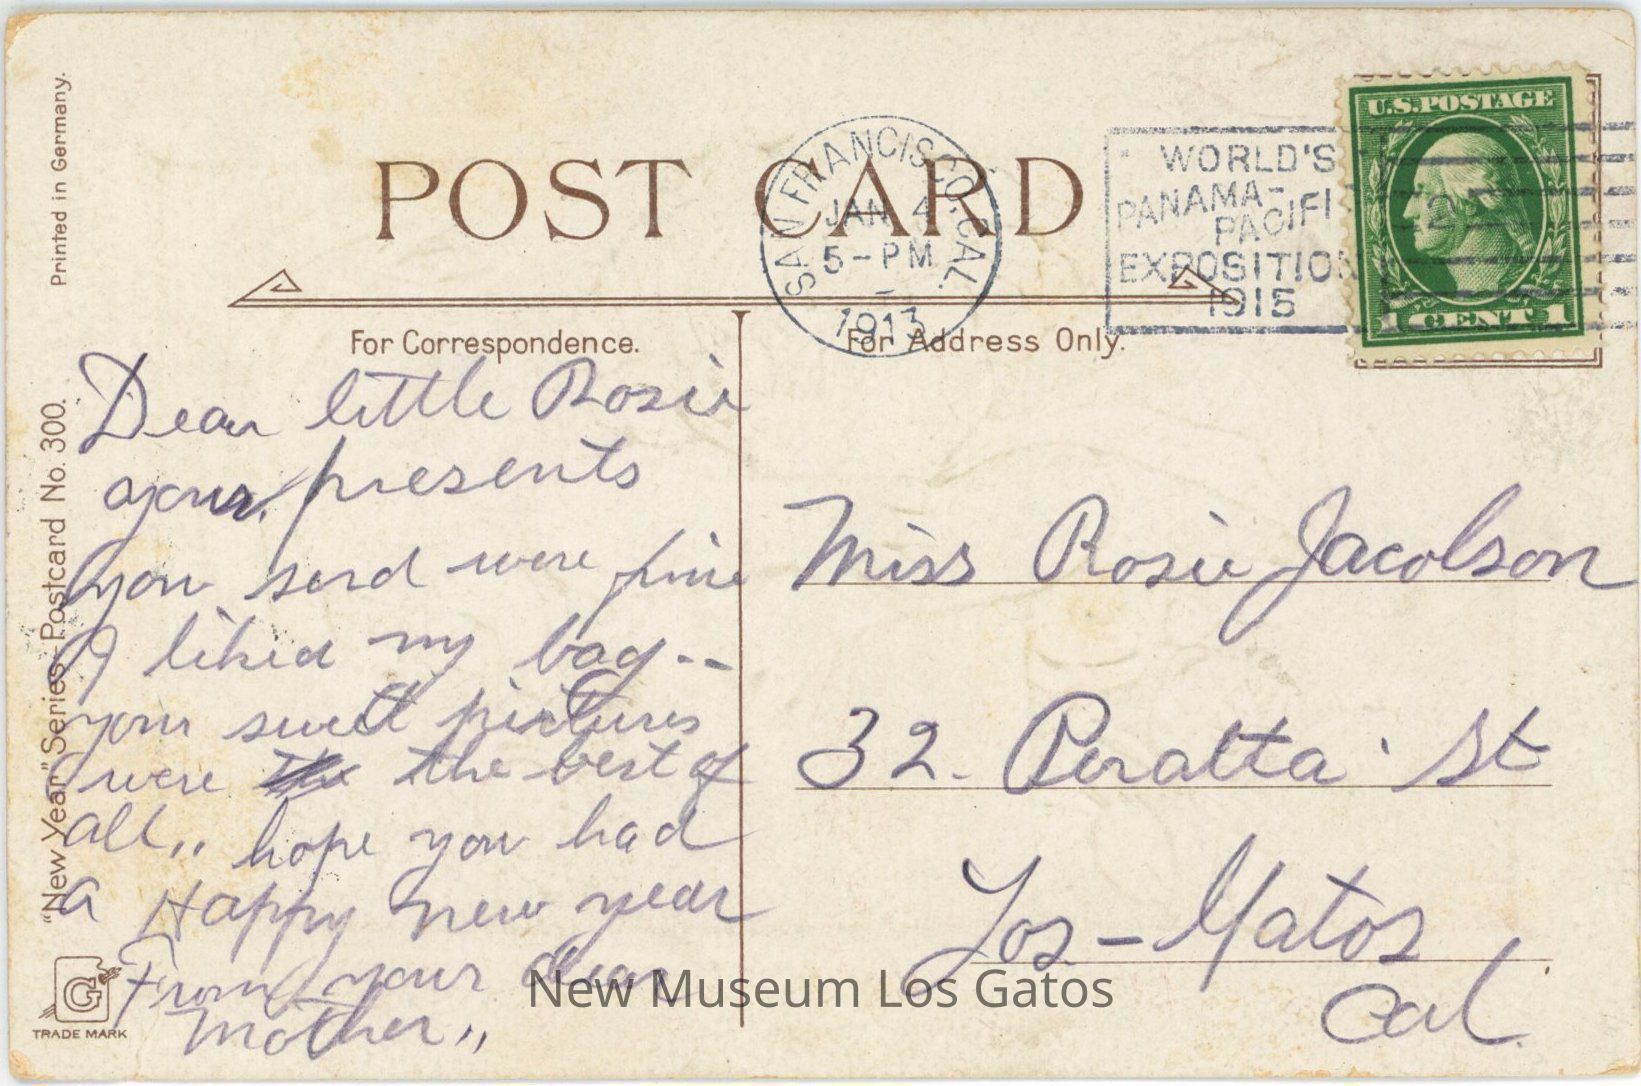 Printed in Germany.
"New Year" Series, Postcard No. 300.
POST CARD
SAN FRANCISCO, CAL.
JAN 4
5-PM
1913
WORLD'S
PANAMA-
PACIFI
EXPOSITION
1915
U.S. POSTAGE
2
1 CENT 1
For Correspondence.
For Address Only.
Dear little Rosie
your presents
you send were fine
I liked my bag--
your sweet pictures
were the the best of
all,, hope you had
a Happy new year
From your dear
Mother,,
Miss Rosie Jacobson
32. Peralta St
Los-Gatos
Cal.
G
TRADE MARK
New Museum Los Gatos